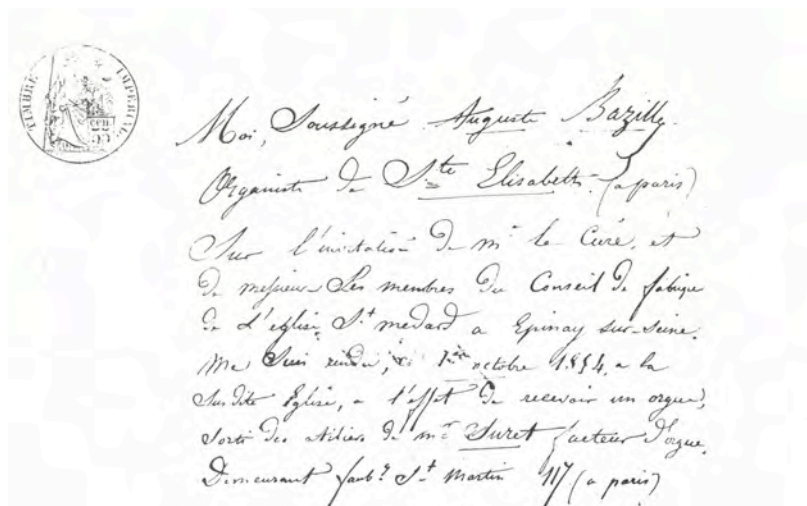 TIMBRE IMPERIAL
Moi, Soussigné Auguste Bazille
Organiste de Ste Elisabeth (a paris)
Sur l'invitation de mr le Curé, et
de messieurs Les membres du Conseil de fabrique
de L'eglise St medard a Epinay sur-Seine.
me suis rendu, octobre 1854, a la
susdite Eglise, a l'effet de recevoir un orgue,
sorti des atiliers de mr Suret facteur d'orgue,
Demeurant faubg St Martin 117 (a paris)